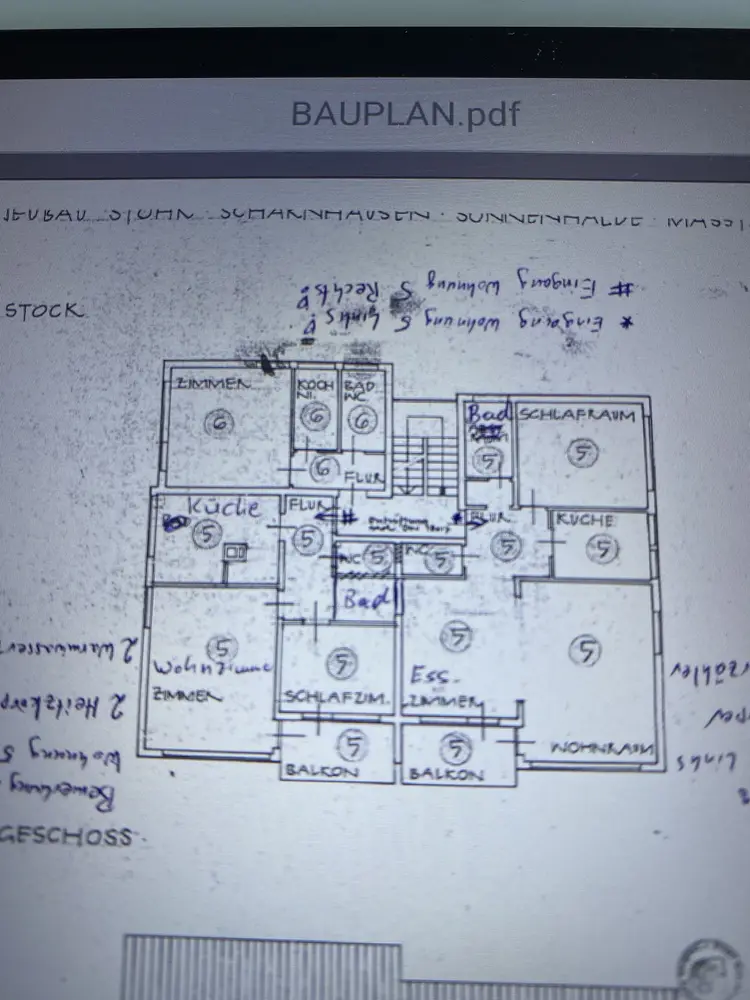 BAUPLAN.pdf
NEUBAU STOHN · SCHARNHAUSEN · SONNENHALDE · MASSI
# Eingang Wohnung 5 Rechts
* Eingang Wohnung 5 Links
STOCK
ZIMMER
6
KOCH
NI.
6
BAD
WC
6
6
FLUR
Bad
5
SCHLAFRAUM
5
Küche
5
FLUR
5
#
*
FLUR
5
KÜCHE
5
WC
5
WC
5
Bad
5
Wohnzimmer
ZIMMER
5
SCHLAFZIM.
5
Ess-
ZIMMER
5
WOHNRAUM
5
BALKON
5
BALKON
2 Warmwasser
zähler
2 Heitzkörp
per
Wohnung 5
Links
Bemerkung
GESCHOSS